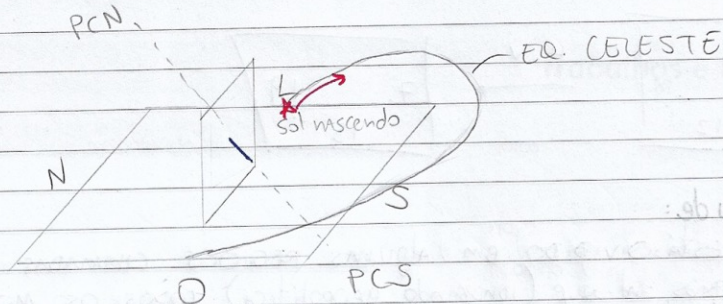 PCN
EQ. CELESTE
L
sol nascendo
N
S
O
PCS